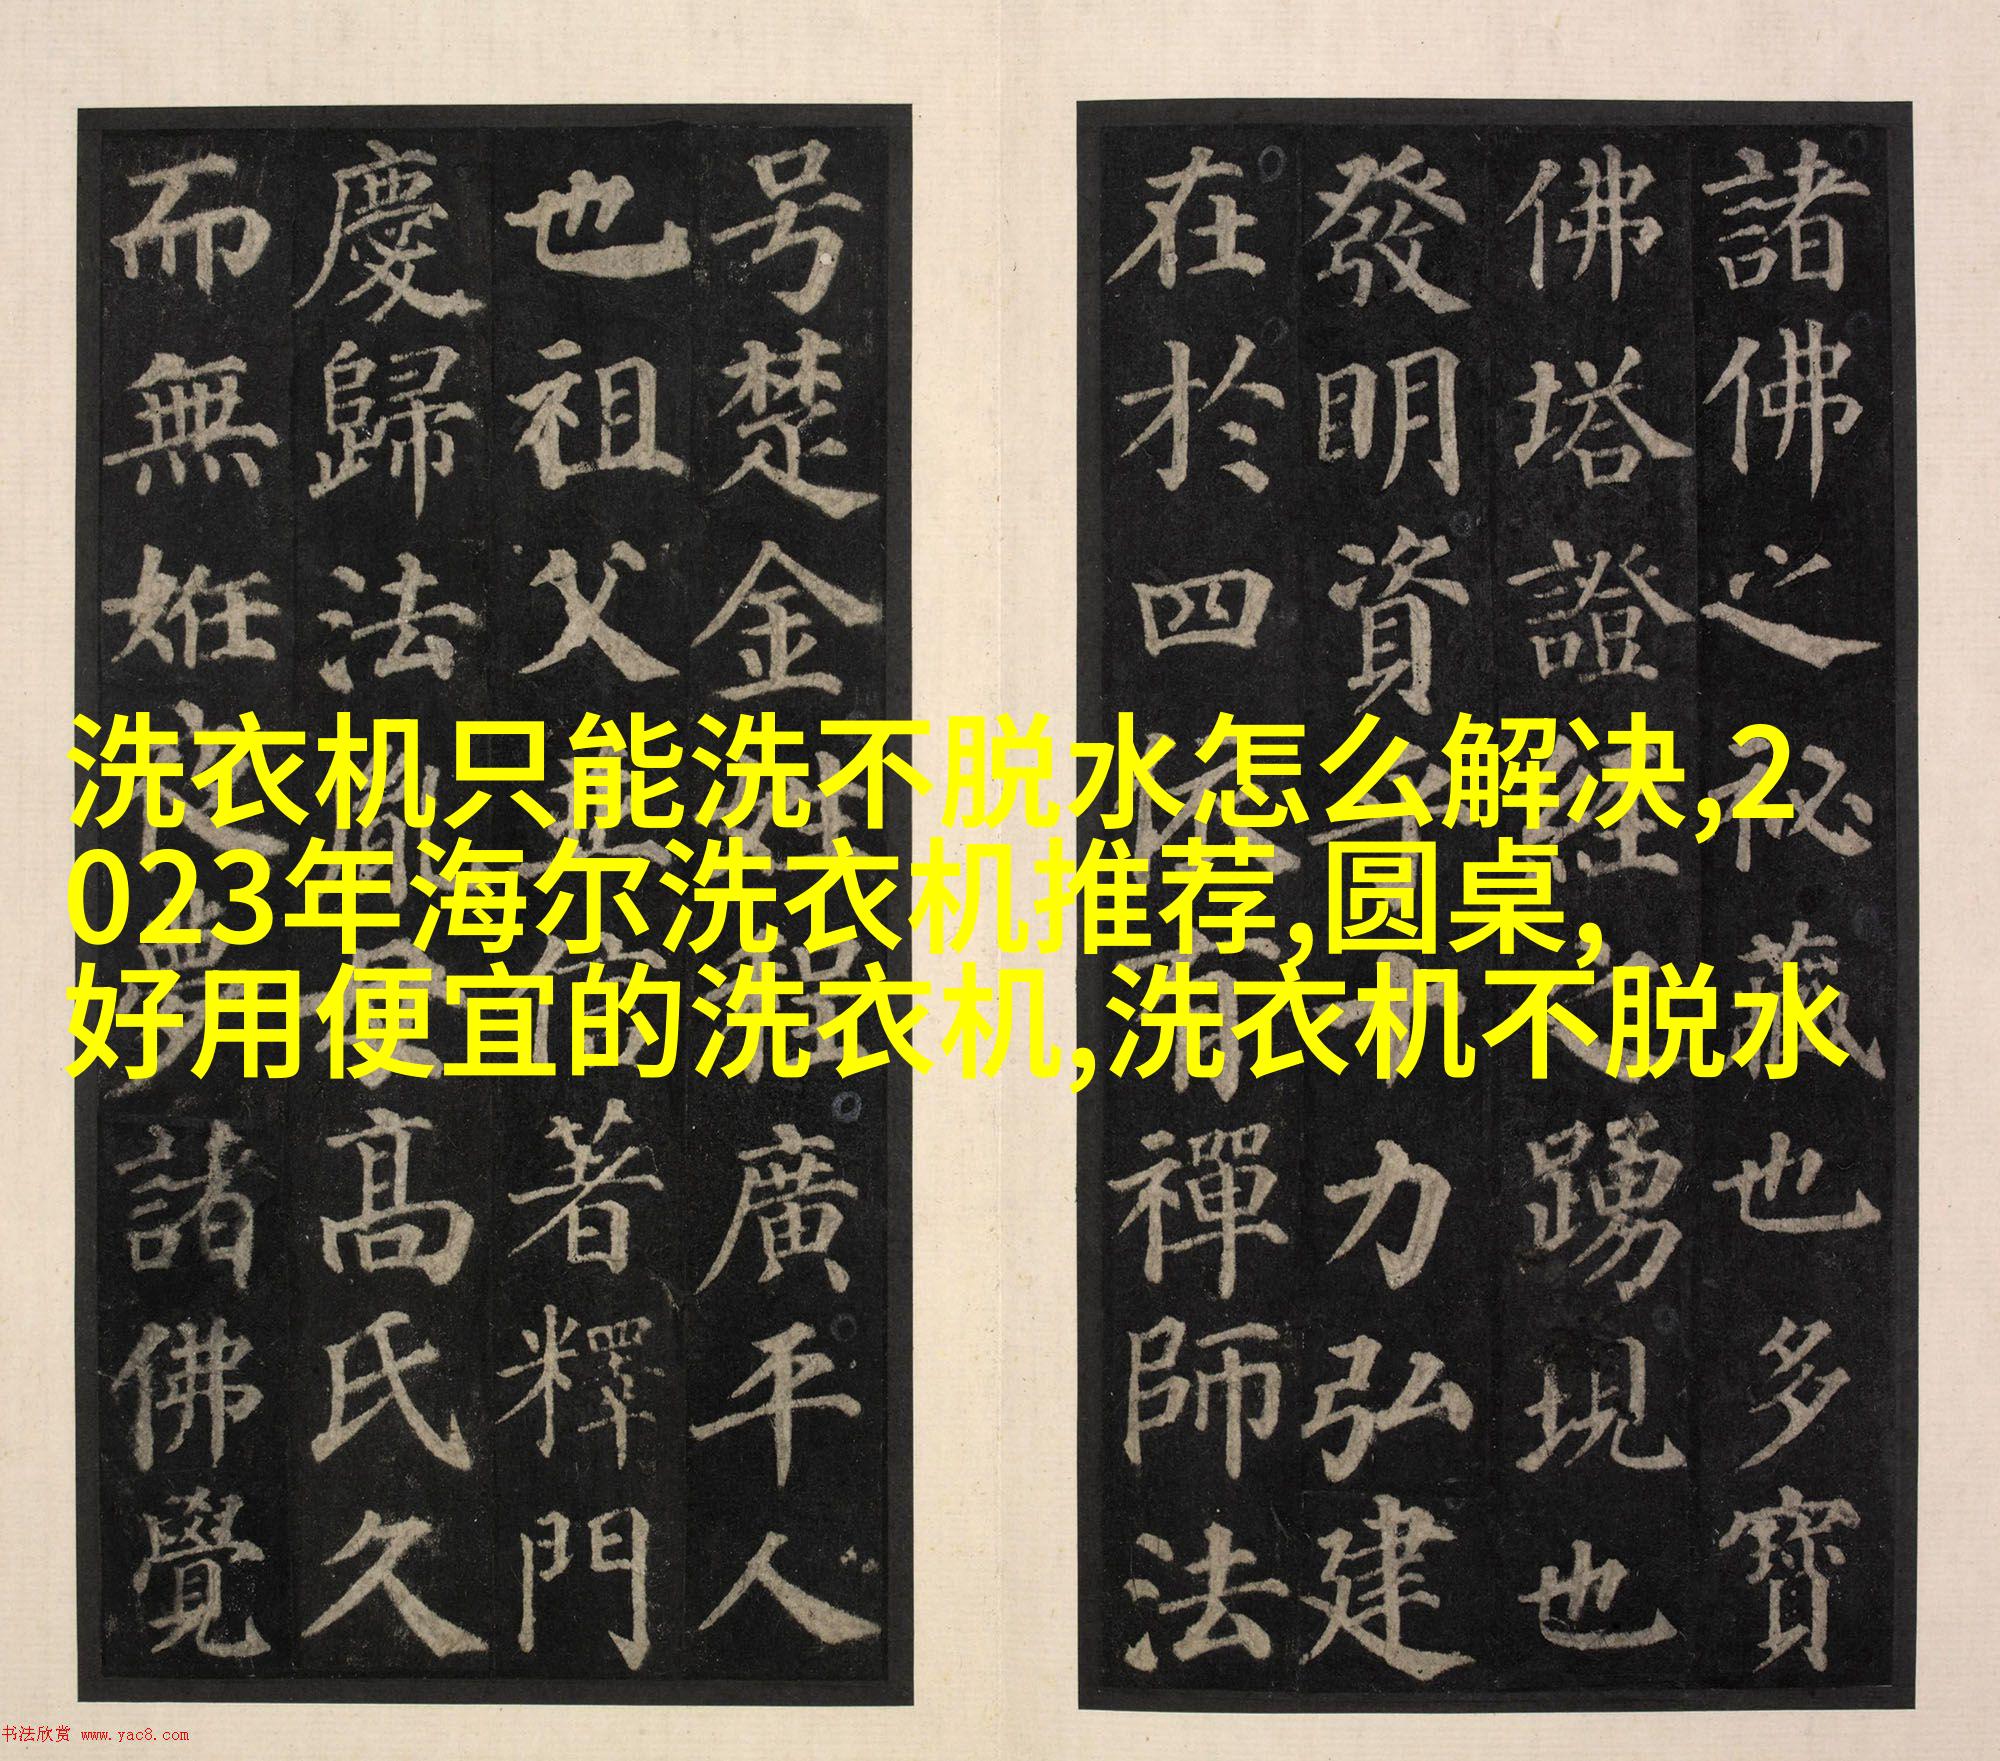 諸佛之祕藏也多寶
佛塔證經之踴現也
發明資乎十力弘建
在於四依有禪師法
号楚金姓程廣平人
也祖父並信著釋門
慶歸法胤母高氏久
而無姙夜夢諸佛覺
洗衣机只能洗不脱水怎么解决,2
023年海尔洗衣机推荐,圆桌,
好用便宜的洗衣机,洗衣机不脱水
书法欣赏 www.yac8.com